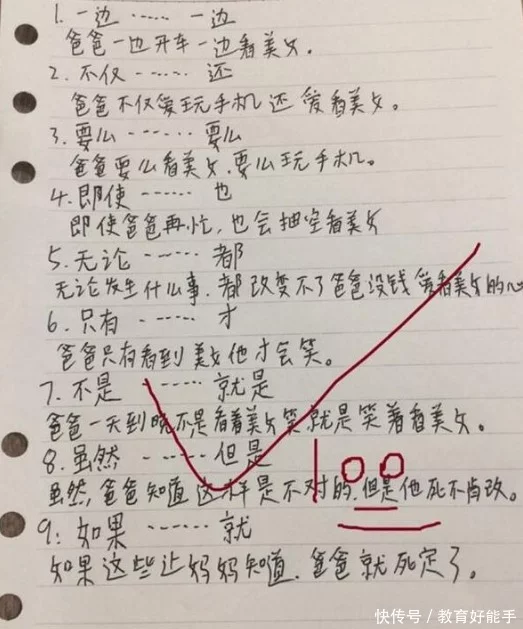 1. 一边 …… 一边
爸爸一边开车一边看美女.
2. 不仅 …… 还
爸爸不仅爱玩手机还爱看美女。
3. 要么 …… 要么
爸爸要么看美女.要么玩手机。
4. 即使 …… 也
即使爸爸再忙,也会抽空看美女
5. 无论 …… 都
无论发生什么事.都改变不了爸爸没钱爱看美女的心
6. 只有 …… 才
爸爸只有看到美女他才会笑。
7. 不是 …… 就是
爸爸一天到晚不是看着美女笑就是笑着看美女。
8. 虽然 …… 但是
100
虽然,爸爸知道这样是不对的.但是他死不肯改。
9: 如果 …… 就
如果这些让妈妈知道.爸爸就死定了。
快传号/教育好能手